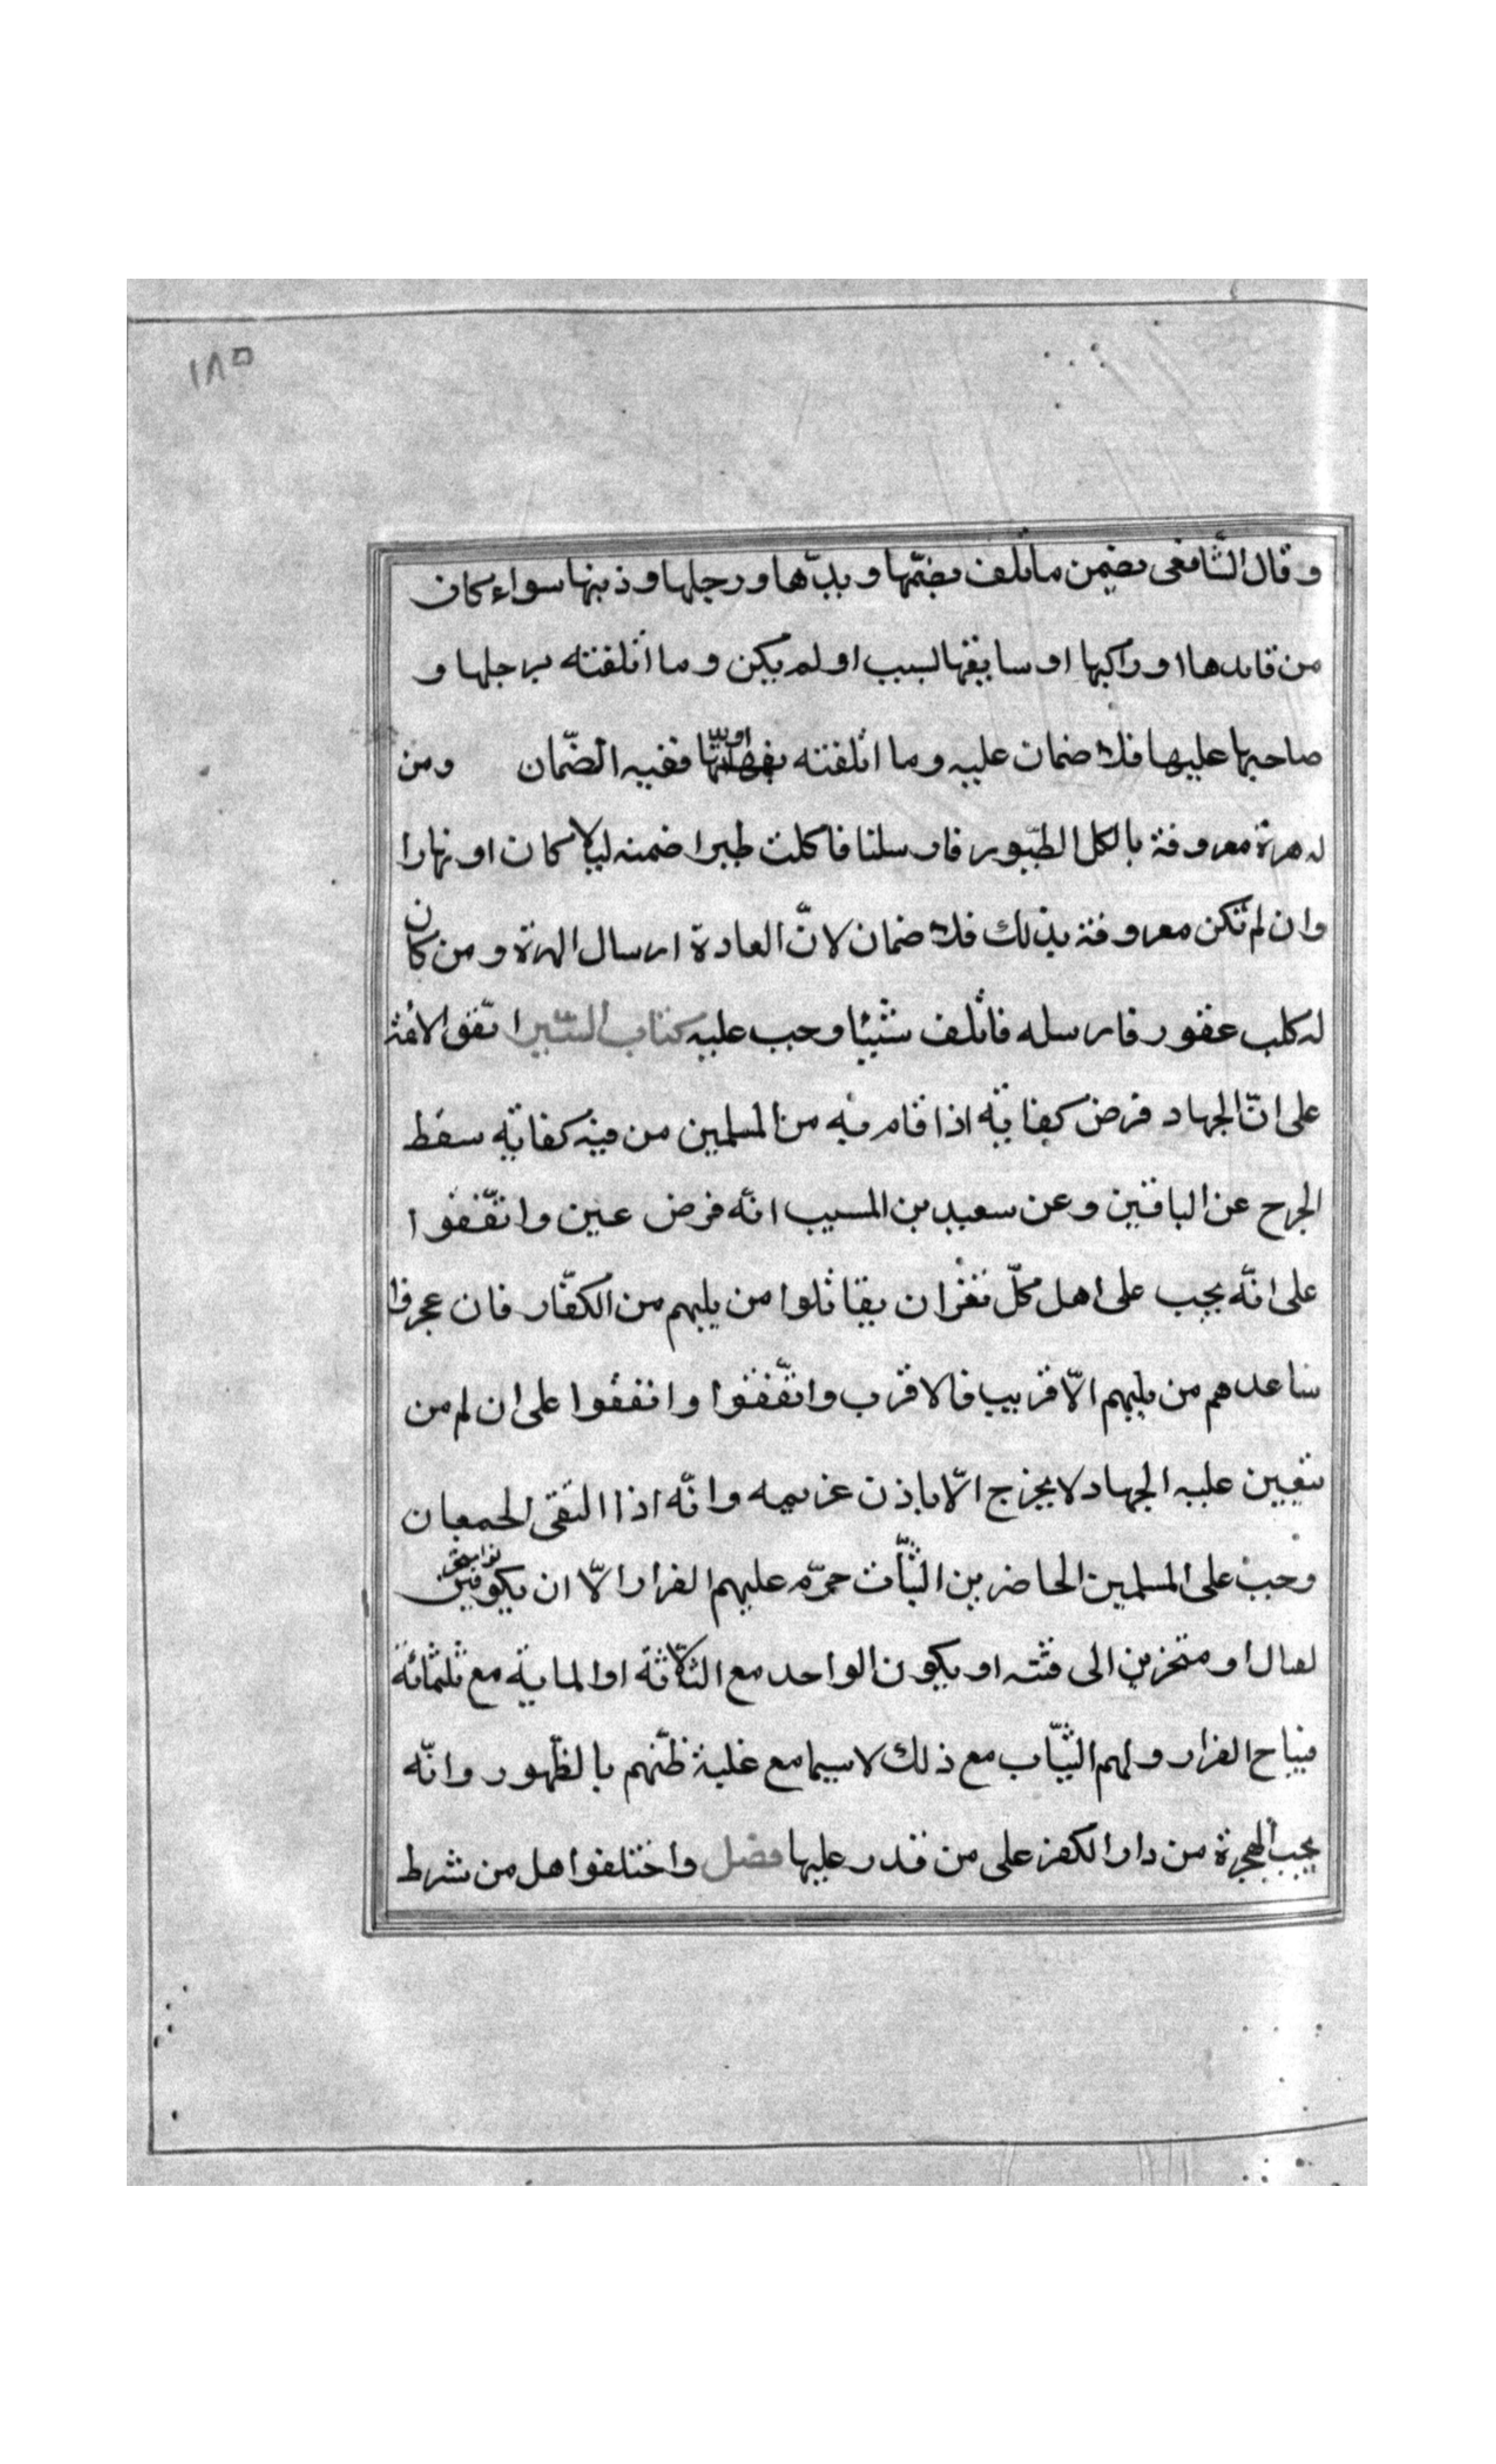 ١٨٥
وقال الشّافعى يضمن ما تلف بفمّها و يدّها ورجلها وذنبها سواء كان
من قايدها او راكبها او سايقها لسبب او لم يكن وما اتلفته برجلها و
صاحبها عليها فلا ضمان عليه وما اتلفته بفمها ففيه الضّمان ومن
له هرة معروفة بالكل الطّيور فارسلنا فاكلت طيرا ضمنه ليلا كان او نهارا
وان لم تكن معروفة بذلك فلا ضمان لانّ العادة ارسال الهرة ومن كان
له كلب عقور فارسله فاتلف شيئا وجب عليه كتاب السّير اتّفق الائمة
على انّ الجهاد فرض كفاية اذا قام به من المسلمين من فيه كفاية سقط
الجرح عن الباقين وعن سعيد بن المسيب انّه فرض عين واتّفقوا
على انّه يجب على اهل كلّ ثغر ان يقاتلوا من يليهم من الكفّار فان عجزوا
ساعدهم من يليهم الّا قريب فالاقرب واتّفقوا واتفقوا على ان لم من
يتعين عليه الجهاد لا يخرج الّا باذن غريمه وانّه اذا التقى الجمعان
وجب على المسلمين الحاضرين الثّبات حرّم عليهم الفرار الّا ان يكو
لقتال او متحزين الى فئته او يكون الواحد مع الثلاثّة او الماية مع ثلثمائة
فيباح الفرار ولهم الثّياب مع ذلك لا سيما مع غلبة ظنّهم بالظّهور وانّه
يجب الهجرة من دار الكفر على من قدر عليها فصل واختلفوا هل من شرط